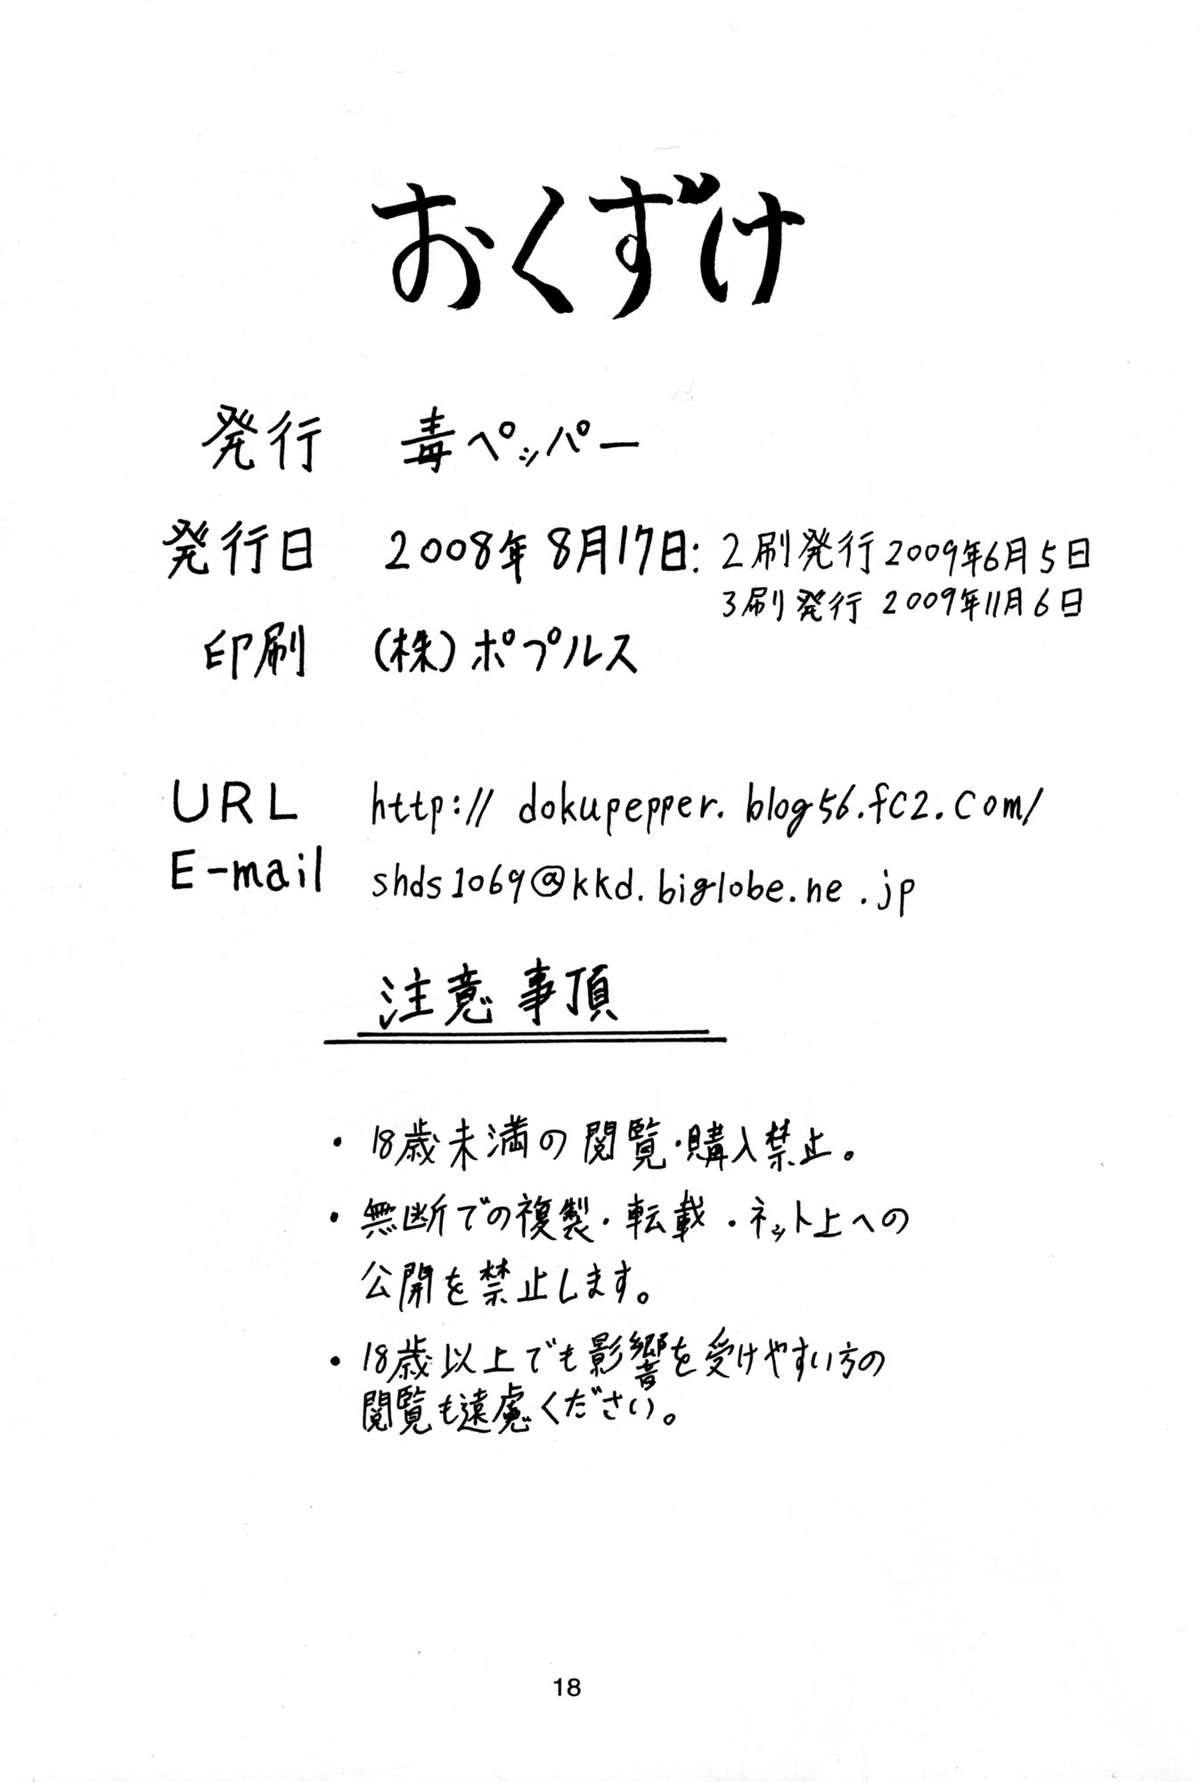 おくずけ
発行 毒ペッパー
発行日 2008年8月17日: 2刷発行 2009年6月5日
3刷発行 2009年11月6日
印刷 (株)ポプルス
URL http://dokupepper.blog56.fc2.com/
E-mail shds1069@kkd.biglobe.ne.jp
注意事項
・18歳未満の閲覧・購入禁止。
・無断での複製・転載・ネット上への
公開を禁止します。
・18歳以上でも影響を受けやすい方の
閲覧も遠慮ください。
18